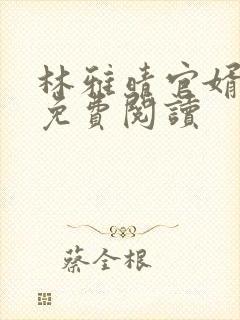 林雅晴官婿
免費閱讀
蔡全根